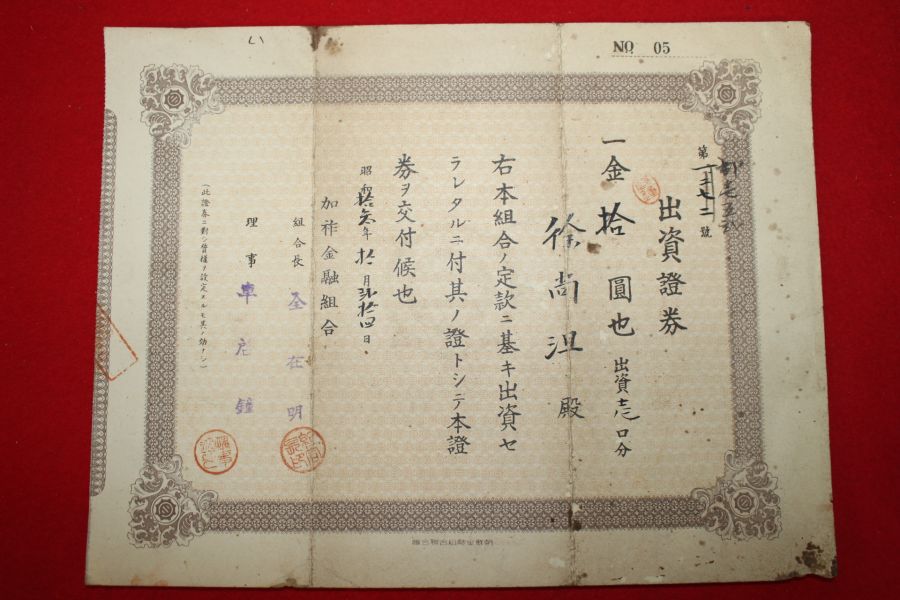 NO. 05
い
第 號
出資證券
一金拾圓也 出資壱口分
徐尚 殿
右本組合ノ定款ニ基キ出資セ
ラレタルニ付其ノ證トシテ本證
券ヲ交付候也
昭和拾六年 月弐拾四日
加祚金融組合
組合長 全在明
理事 車 鍾
(此證券ニ對シ質權ヲ設定スルモ其ノ効ナシ)